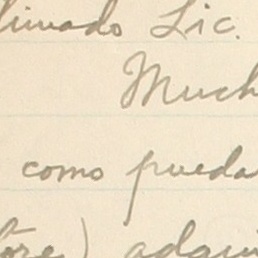 timado Lic.
Much
como pueda
tore) adqui